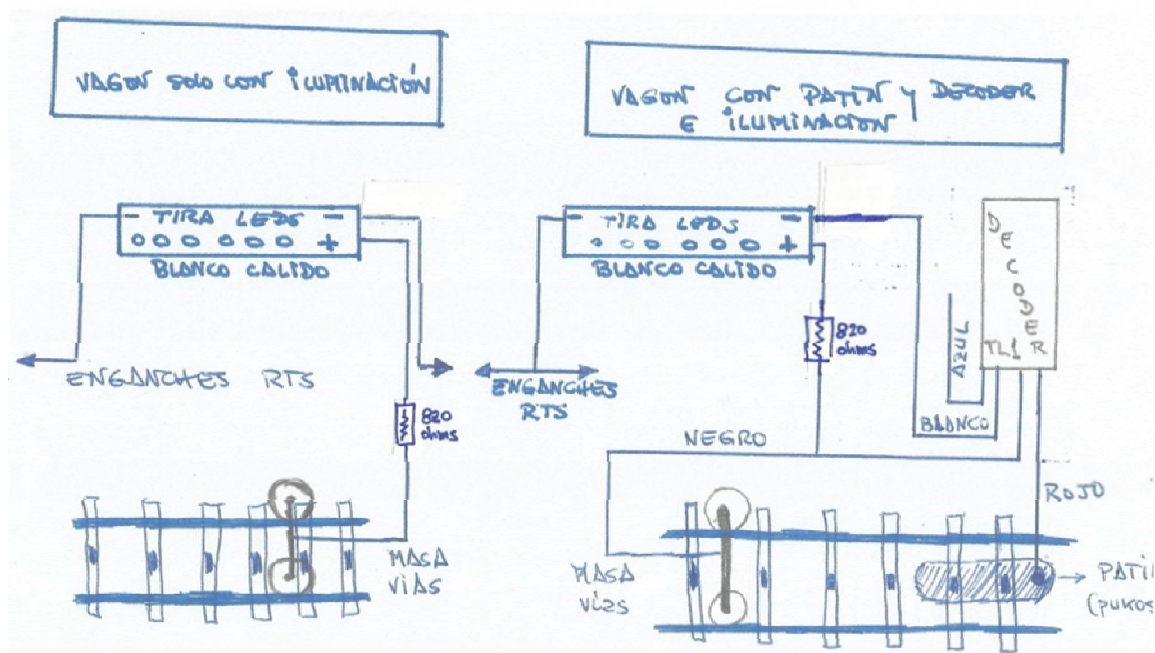 VAGON SOLO CON ILUMINACIÓN
- TIRA LEDS -
+
BLANCO CALIDO
ENGANCHES RTS
820
ohms
MASA
VIAS
VAGON CON PATIN Y DECODER
E ILUMINACION
- TIRA LEDS -
+
BLANCO CALIDO
820
ohms
ENGANCHES
RTS
NEGRO
AZUL
BLANCO
DECODER
TL1
ROJO
MASA
VIAS
PATI
(PUKOS